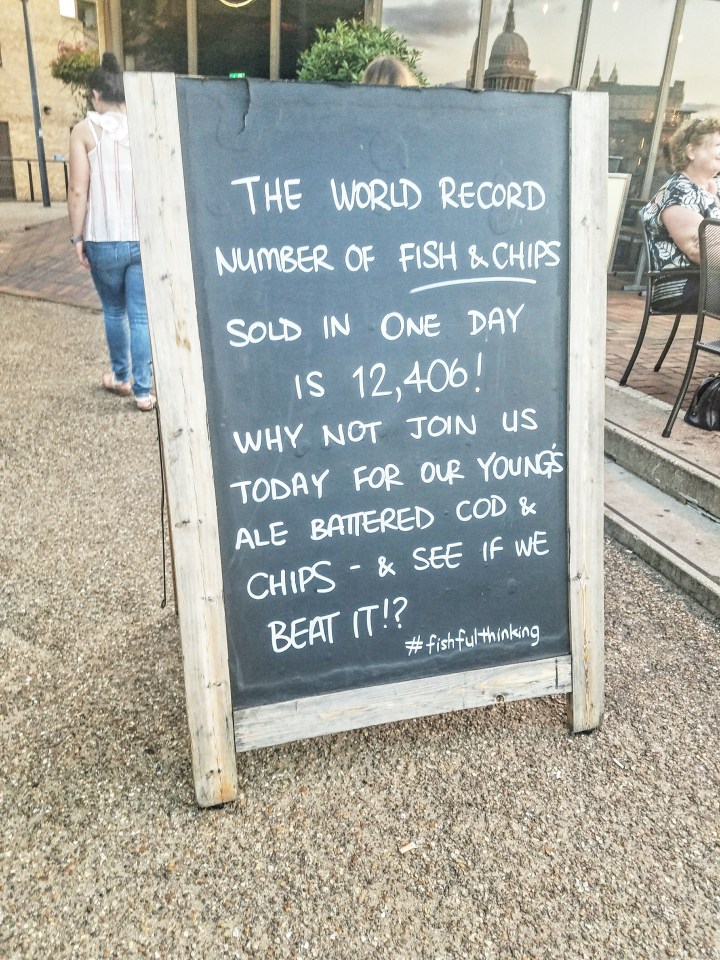 THE WORLD RECORD
NUMBER OF FISH & CHIPS
SOLD IN ONE DAY
IS 12,406!
WHY NOT JOIN US
TODAY FOR OUR YOUNG'S
ALE BATTERED COD &
CHIPS - & SEE IF WE
BEAT IT!?
#fishfulthinking